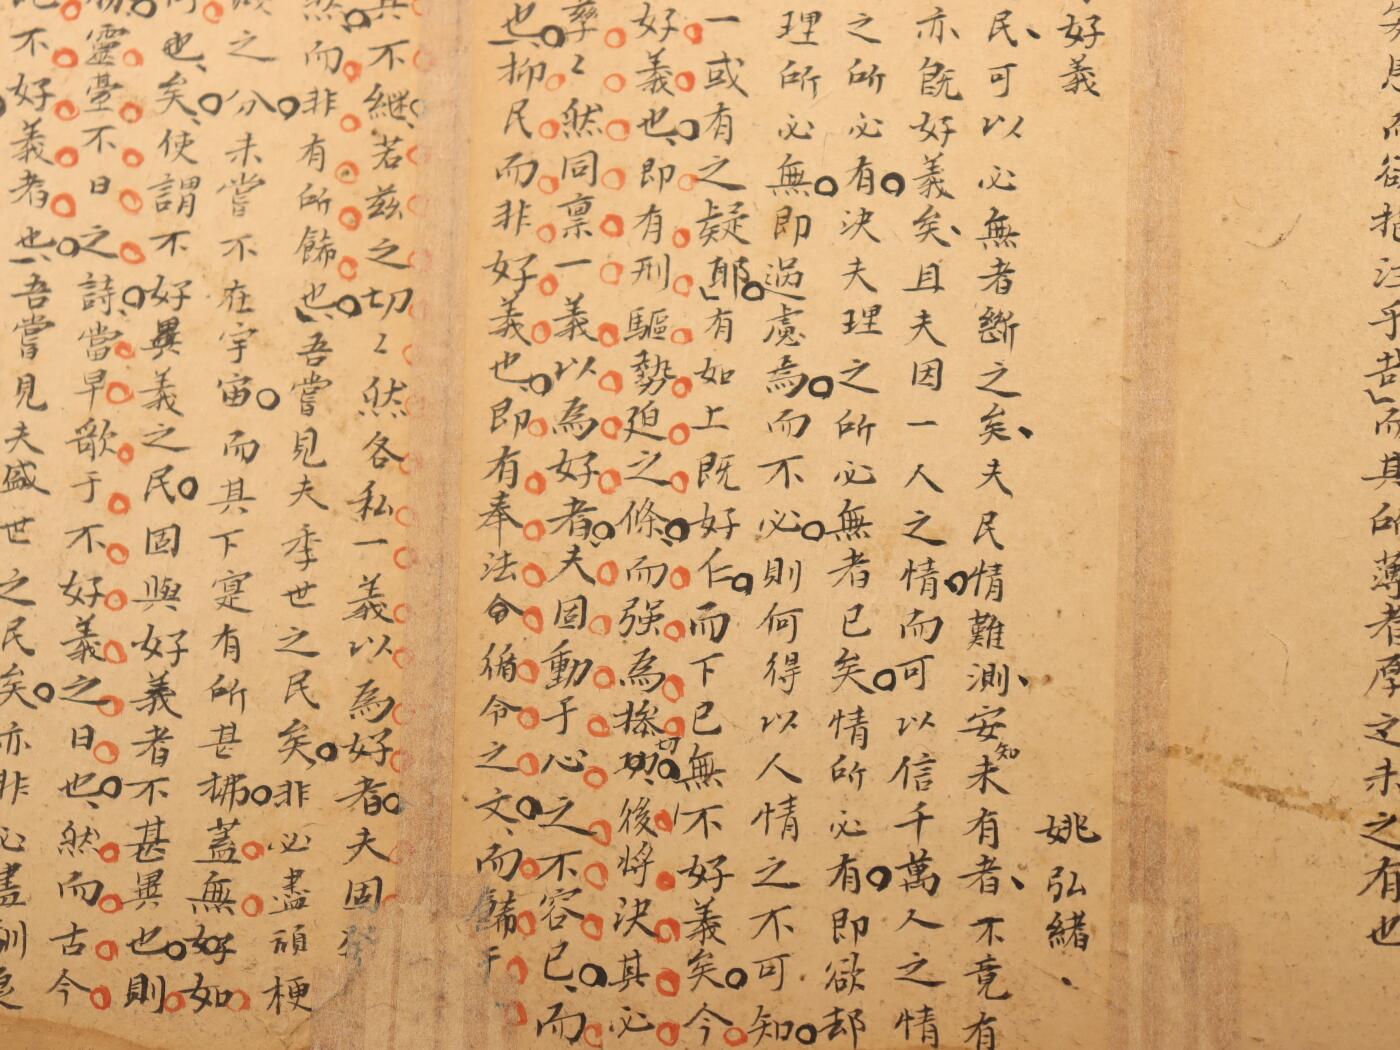 而欲指江乎哉而其所薄者厚之未之有也
好義
姚弘緒
民可以必無者斷之矣夫民情難測安知未有者不竟有
亦既好義矣且夫因一人之情而可以信千萬人之情
之所必有決夫理之所必無者已矣情所必有即欲却
理所必無即過慮焉而不必則何得以人情之不可知
一或有之疑耶有如上既好仁而下已無不好義矣今
好義也即有刑驅勢廹之條而强為掺切後将決其必
孳〻然同禀一義以為好者夫固動于心之不容已而
也抑民而非好義也即有奉法命循令之文而餙于
其不継若兹之切〻然各私一義以為好者夫固發
然而非有所餙也吾嘗見夫季世之民矣非必盡頑梗
之分未嘗不在宇宙而其下寔有所甚拂蓋無好如
何也矣使謂不好異義之民固與好義者不甚異也則
靈臺不日之詩當早歌于不好義之日也然而古今
不好義者也吾嘗見夫盛世之民矣亦非必盡馴良